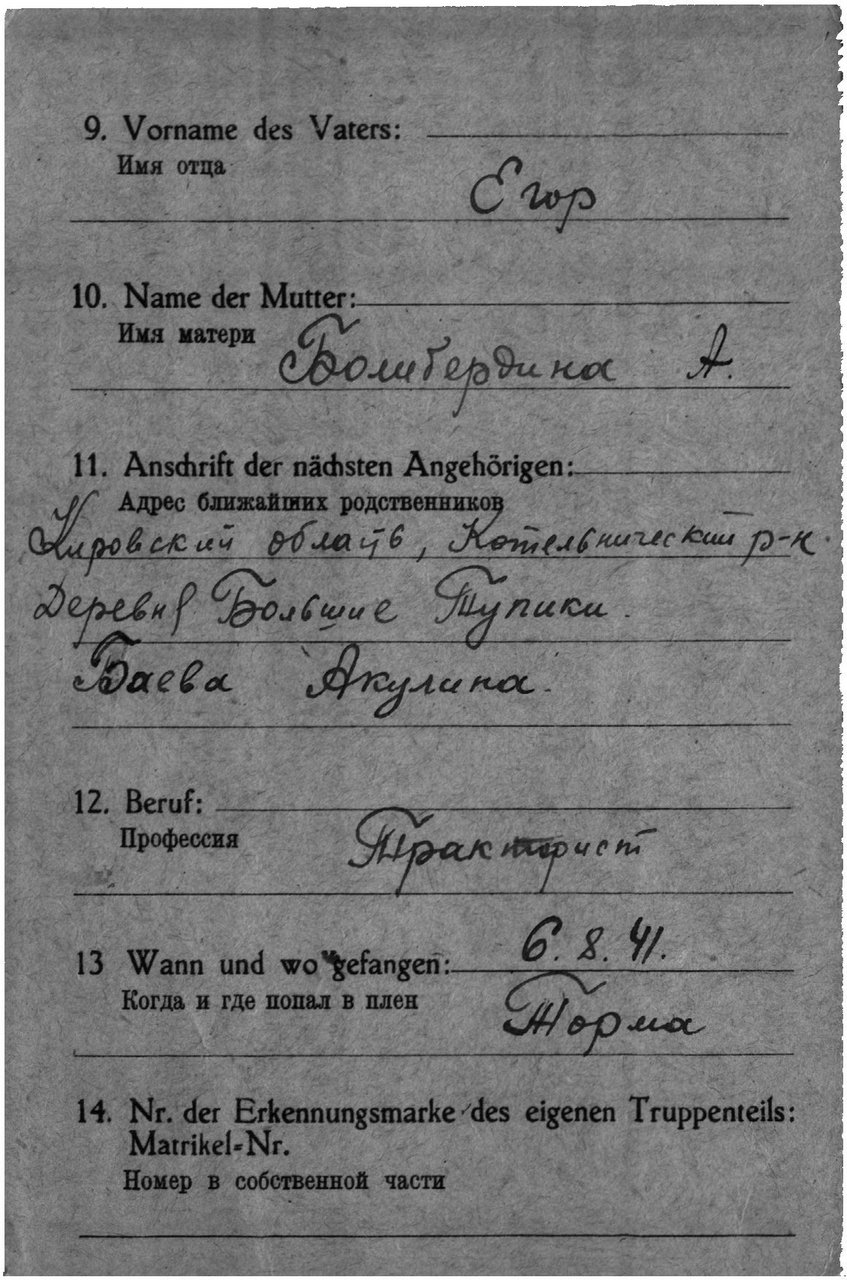 9. Vorname des Vaters:
Имя отца
Егор
10. Name der Mutter:
Имя матери
Болибердина А.
11. Anschrift der nächsten Angehörigen:
Адрес ближайших родственников
Кировский область, Котельнический р-н
Деревня Большие Тупики.
Баева Акулина.
12. Beruf:
Профессия
Тракторист
13 Wann und wo gefangen: 6. 8. 41.
Когда и где попал в плен
Торма
14. Nr. der Erkennungsmarke des eigenen Truppenteils:
Matrikel-Nr.
Номер в собственной части